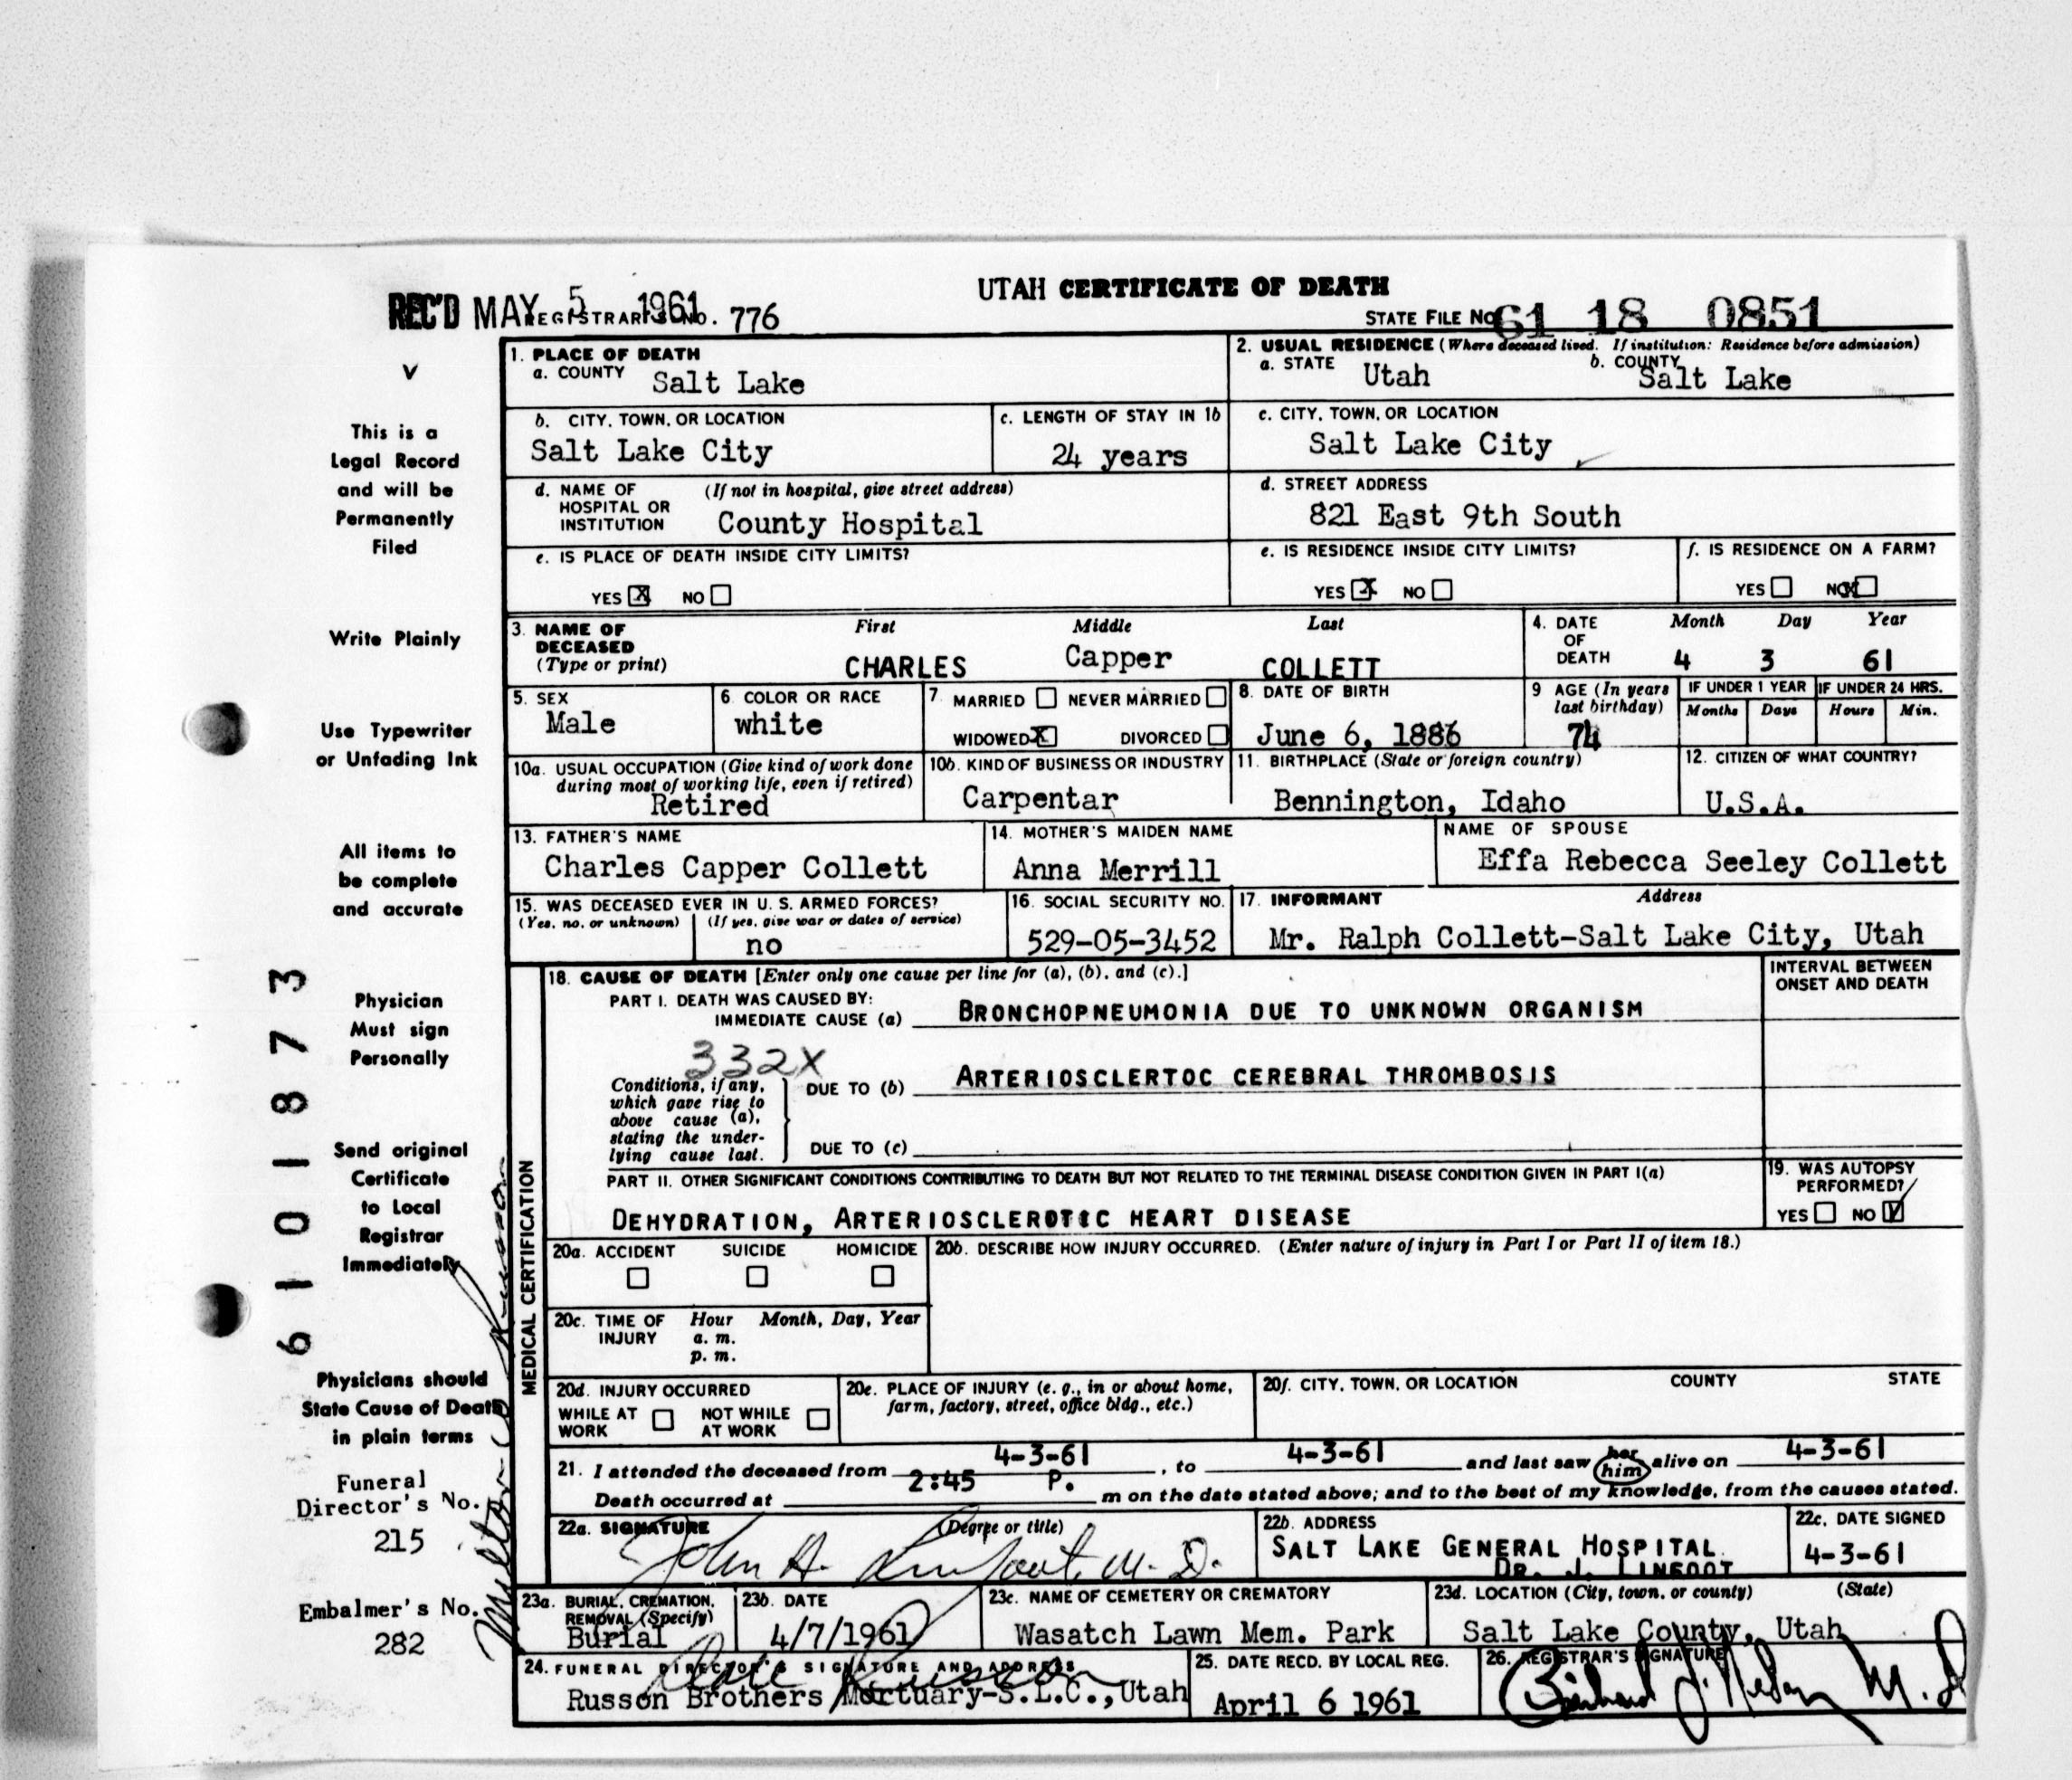 UTAH CERTIFICATE OF DEATH
REC'D MAY 5 1961 REGISTRAR'S NO. 776
STATE FILE NO. 61 18 0851
1. PLACE OF DEATH
a. COUNTY Salt Lake
2. USUAL RESIDENCE (Where deceased lived. If institution: Residence before admission)
a. STATE Utah b. COUNTY Salt Lake
b. CITY, TOWN, OR LOCATION
Salt Lake City
c. LENGTH OF STAY IN 1b
24 years
c. CITY, TOWN, OR LOCATION
Salt Lake City
d. NAME OF HOSPITAL OR INSTITUTION (If not in hospital, give street address)
County Hospital
d. STREET ADDRESS
821 East 9th South
e. IS PLACE OF DEATH INSIDE CITY LIMITS?
YES X NO
e. IS RESIDENCE INSIDE CITY LIMITS?
YES X NO
f. IS RESIDENCE ON A FARM?
YES NO X
3. NAME OF DECEASED (Type or print)
First Middle Last
CHARLES Capper COLLETT
4. DATE OF DEATH Month Day Year
4 3 61
5. SEX
Male
6. COLOR OR RACE
white
7. MARRIED NEVER MARRIED
WIDOWED X DIVORCED
8. DATE OF BIRTH
June 6, 1886
9 AGE (In years last birthday)
74
IF UNDER 1 YEAR IF UNDER 24 HRS.
Months Days Hours Min.
10a. USUAL OCCUPATION (Give kind of work done during most of working life, even if retired)
Retired
10b. KIND OF BUSINESS OR INDUSTRY
Carpentar
11. BIRTHPLACE (State or foreign country)
Bennington, Idaho
12. CITIZEN OF WHAT COUNTRY?
U.S.A.
13. FATHER'S NAME
Charles Capper Collett
14. MOTHER'S MAIDEN NAME
Anna Merrill
NAME OF SPOUSE
Effa Rebecca Seeley Collett
15. WAS DECEASED EVER IN U. S. ARMED FORCES?
(Yes, no, or unknown) (If yes, give war or dates of service)
no
16. SOCIAL SECURITY NO.
529-05-3452
17. INFORMANT Address
Mr. Ralph Collett-Salt Lake City, Utah
MEDICAL CERTIFICATION
18. CAUSE OF DEATH [Enter only one cause per line for (a), (b), and (c).]
INTERVAL BETWEEN ONSET AND DEATH
PART I. DEATH WAS CAUSED BY:
IMMEDIATE CAUSE (a) BRONCHOPNEUMONIA DUE TO UNKNOWN ORGANISM
332X
Conditions, if any, which gave rise to above cause (a), stating the underlying cause last.
DUE TO (b) ARTERIOSCLERTOC CEREBRAL THROMBOSIS
DUE TO (c)
PART II. OTHER SIGNIFICANT CONDITIONS CONTRIBUTING TO DEATH BUT NOT RELATED TO THE TERMINAL DISEASE CONDITION GIVEN IN PART I(a)
DEHYDRATION, ARTERIOSCLEROTIC HEART DISEASE
19. WAS AUTOPSY PERFORMED?
YES NO
20a. ACCIDENT SUICIDE HOMICIDE
20b. DESCRIBE HOW INJURY OCCURRED. (Enter nature of injury in Part I or Part II of item 18.)
20c. TIME OF INJURY Hour Month, Day, Year
a. m.
p. m.
20d. INJURY OCCURRED
WHILE AT WORK NOT WHILE AT WORK
20e. PLACE OF INJURY (e. g., in or about home, farm, factory, street, office bldg., etc.)
20f. CITY, TOWN, OR LOCATION COUNTY STATE
21. I attended the deceased from 4-3-61, to 4-3-61 and last saw her him alive on 4-3-61
Death occurred at 2:45 P. m on the date stated above; and to the best of my knowledge, from the causes stated.
22a. SIGNATURE (Degree or title)
John A. Linfoot, M. D.
22b. ADDRESS
SALT LAKE GENERAL HOSPITAL
DR. J. LINFOOT
22c. DATE SIGNED
4-3-61
23a. BURIAL, CREMATION, REMOVAL (Specify)
Burial
23b. DATE
4/7/1961
23c. NAME OF CEMETERY OR CREMATORY
Wasatch Lawn Mem. Park
23d. LOCATION (City, town, or county) (State)
Salt Lake County, Utah
24. FUNERAL DIRECTOR'S SIGNATURE AND ADDRESS
Russon Brothers Mortuary-S.L.C., Utah
25. DATE RECD. BY LOCAL REG.
April 6 1961
26. REGISTRAR'S SIGNATURE
M. D
v
This is a
Legal Record
and will be
Permanently
Filed
Write Plainly
Use Typewriter
or Unfading Ink
All items to
be complete
and accurate
Physician
Must sign
Personally
Send original
Certificate
to Local
Registrar
Immediately
Physicians should
State Cause of Death
in plain terms
Funeral
Director's No.
215
Embalmer's No.
282
Milton Russon
6101873